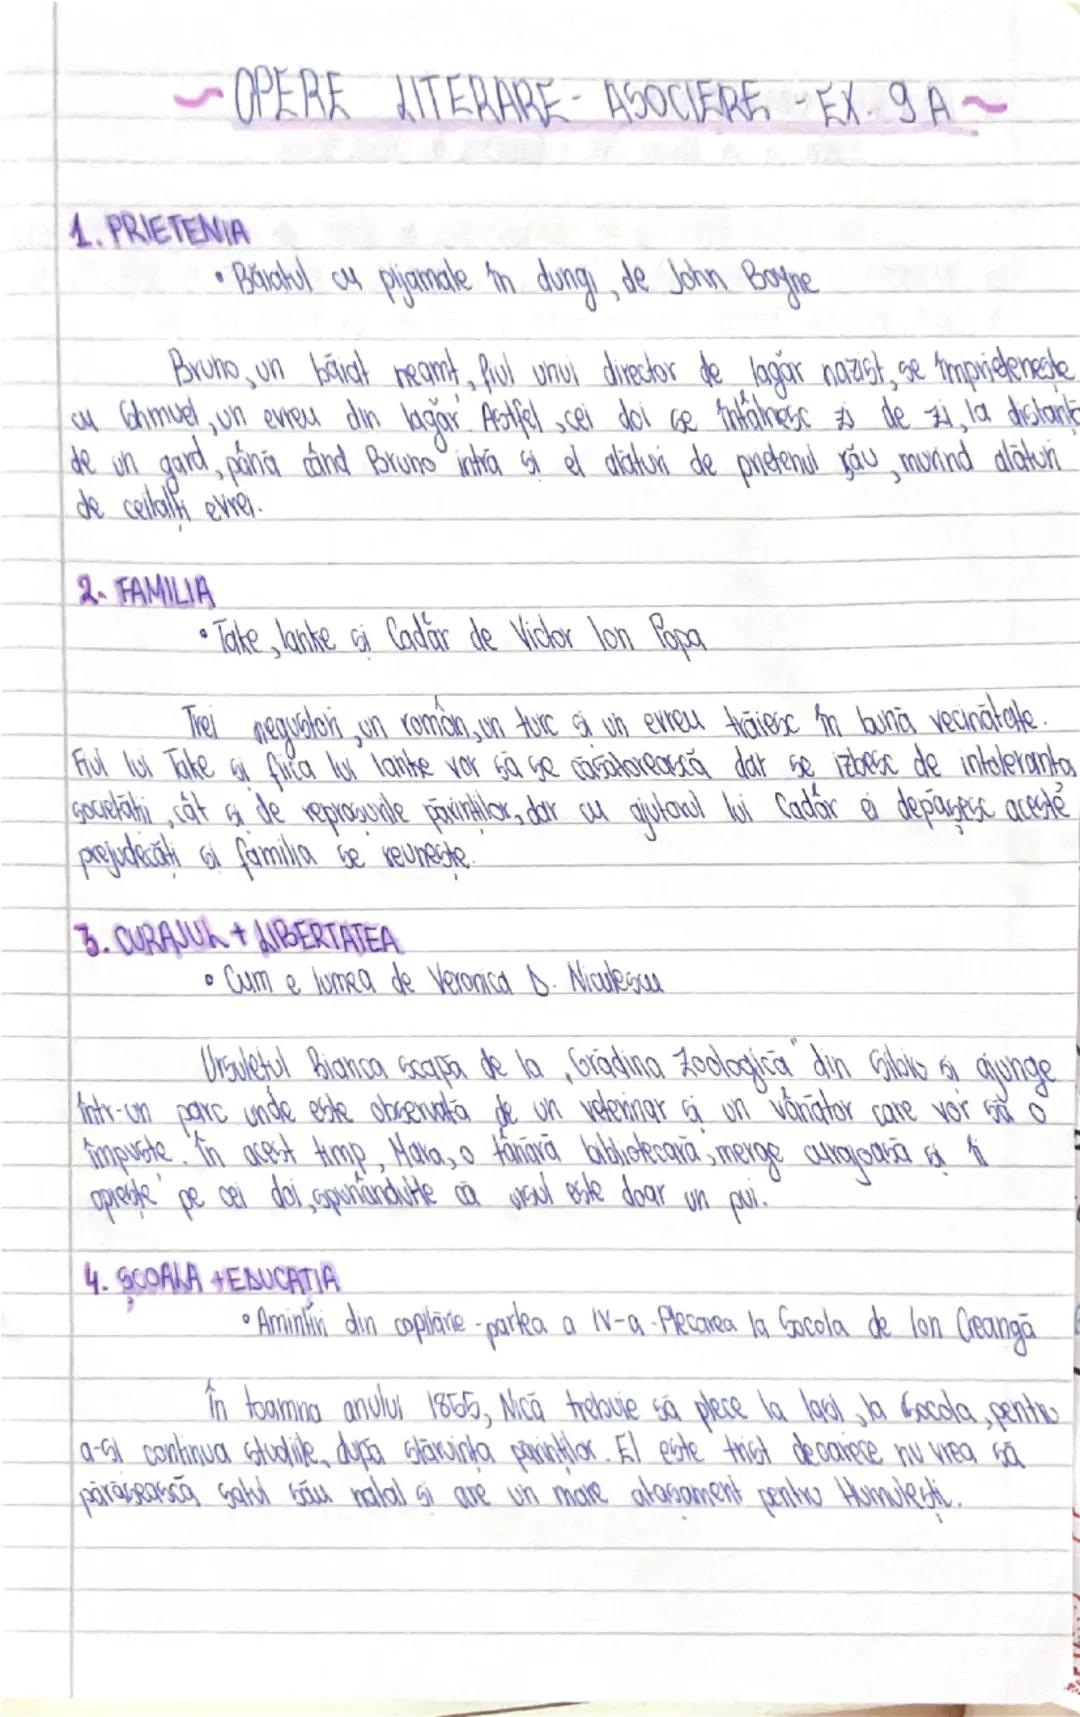 ~ OPERE LITERARE - ASOCIERE - EX. 9 A ~
1. PRIETENIA
• Băiatul cu pijamale în dungi, de John Boyne
Bruno, un băiat neamț, fiul unui director de lagăr nazist, se împrietenește
cu Shmuel, un evreu din lagăr. Astfel, cei doi se întâlnesc zi de zi, la distanță
de un gard, până când Bruno intră și el alături de prietenul său, murind alături
de ceilalți evrei.
2. FAMILIA
• Take, Ianke și Cadâr de Victor Ion Popa
Trei negustori, un român, un turc și un evreu trăiesc în bună vecinătate.
Fiul lui Take și fiica lui Ianke vor să se căsătorească dar se izbesc de intoleranța
societății, cât și de reproșurile părinților, dar cu ajutorul lui Cadâr ei depășesc aceste
prejudecăți și familia se reunește.
3. CURAJUL + LIBERTATEA
• Cum e lumea de Veronica D. Niculescu
Ursulețul Bianca scapă de la „Grădina Zoologică" din Sibiu și ajunge
într-un parc unde este observată de un veterinar și un vânător care vor să o
împuște. În acest timp, Mara, o tânără bibliotecară, merge curajoasă și îi
oprește pe cei doi, spunându-le că ursul este doar un pui.
4. ȘCOALA + EDUCAȚIA
• Amintiri din copilărie - partea a IV-a - Plecarea la Socola de Ion Creangă
În toamna anului 1855, Nică trebuie să plece la Iași, la Socola, pentru
a-și continua studiile, după stăruința părinților. El este trist deoarece nu vrea să
părăsească satul său natal și are un mare atașament pentru Humulești.